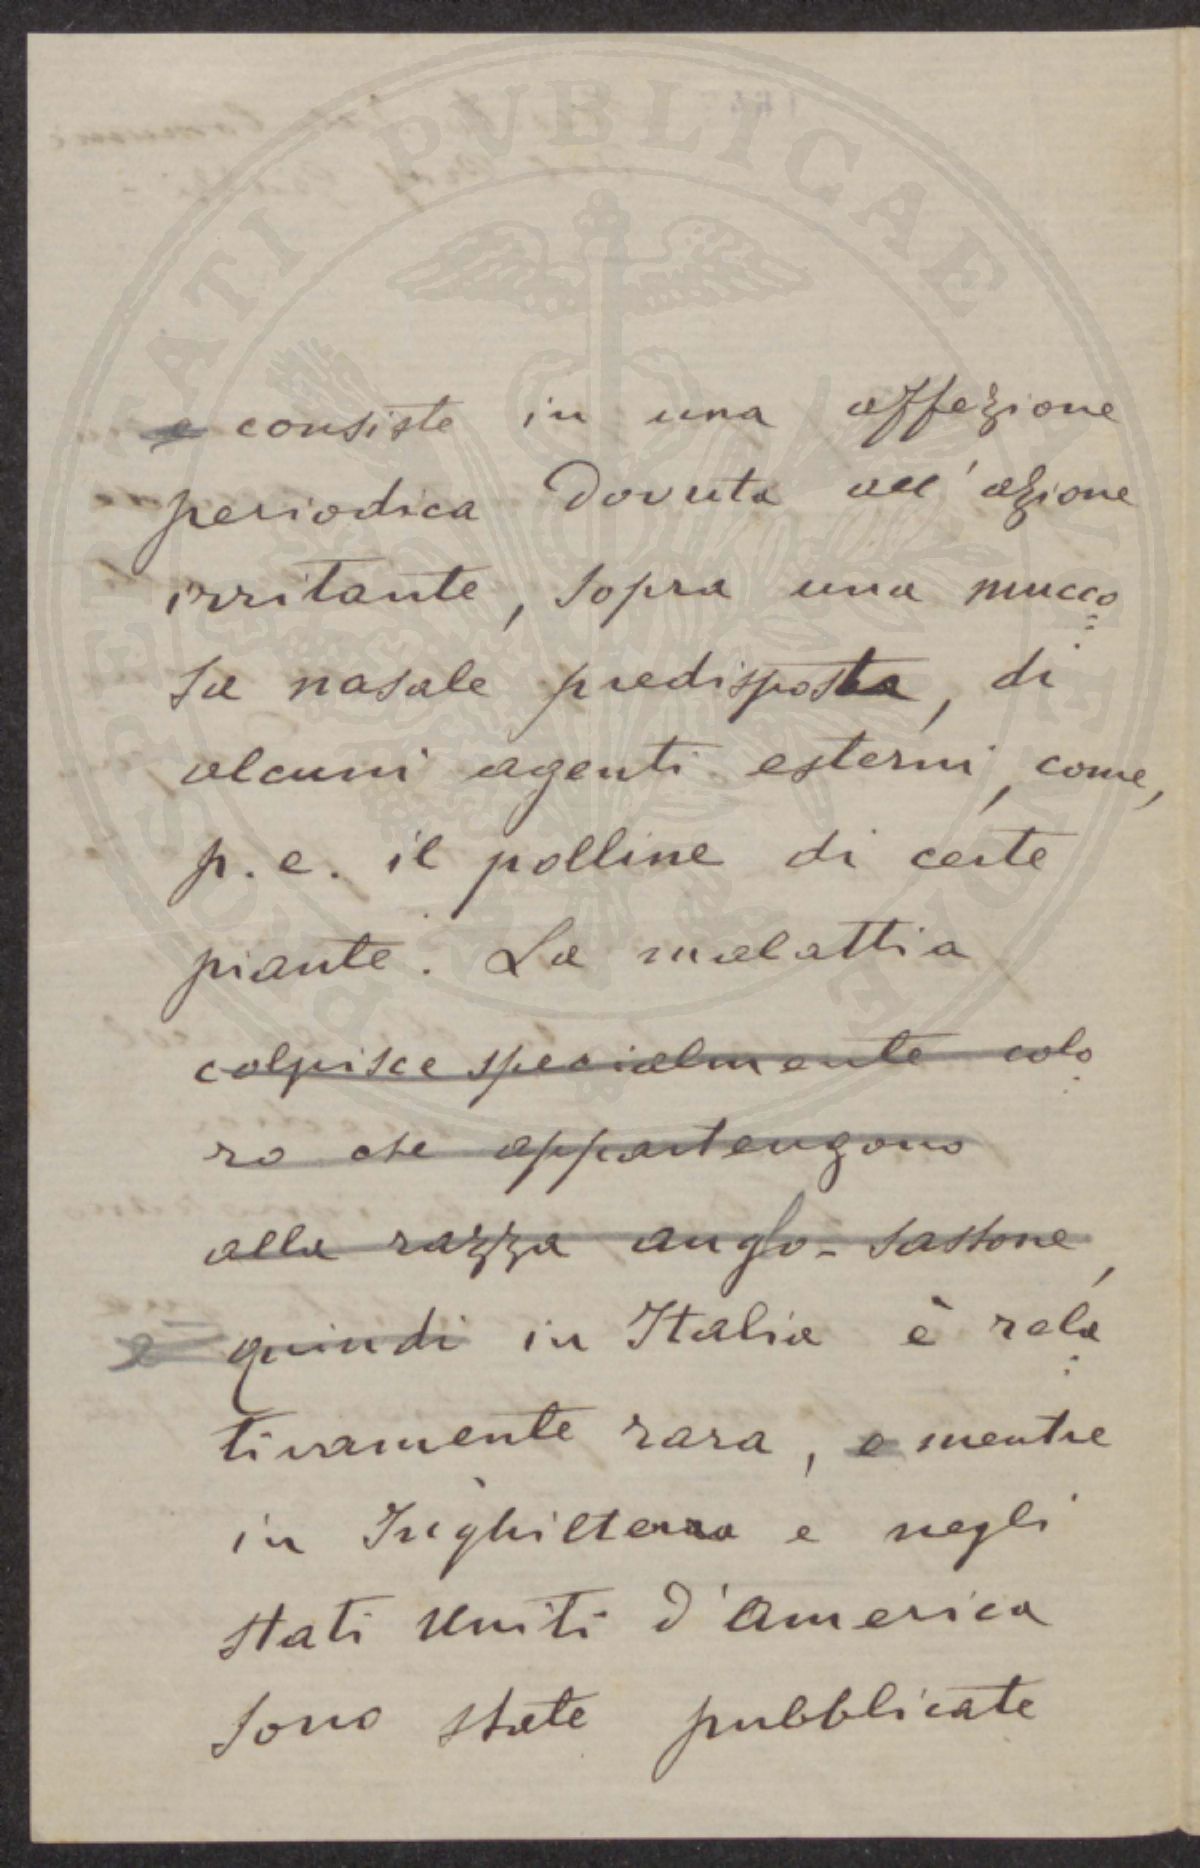 PROSPERITATI PUBLICAE AUGENDAE
e consiste in una affezione
periodica dovuta all'azione
irritante, sopra una mucco
sa nasale predisposta, di
alcuni agenti esterni, come,
p. e. il polline di certe
piante. La malattia
colpisce specialmente colo
ro che appartengono
alla razza anglo-sassone,
e quindi in Italia è rela
tivamente rara, e mentre
in Inghilterra e negli
stati Uniti d'America
sono state pubblicate